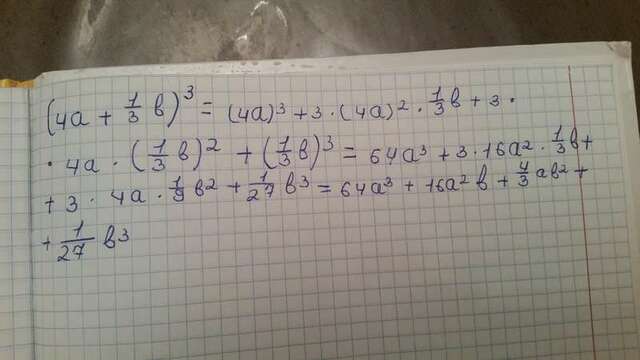 (4a + 1/3 b)³ = (4a)³ + 3 · (4a)² · 1/3 b + 3 ·
· 4a · (1/3 b)² + (1/3 b)³ = 64a³ + 3 · 16a² · 1/3 b +
+ 3 · 4a · 1/9 b² + 1/27 b³ = 64a³ + 16a² b + 4/3 ab² +
+ 1/27 b³